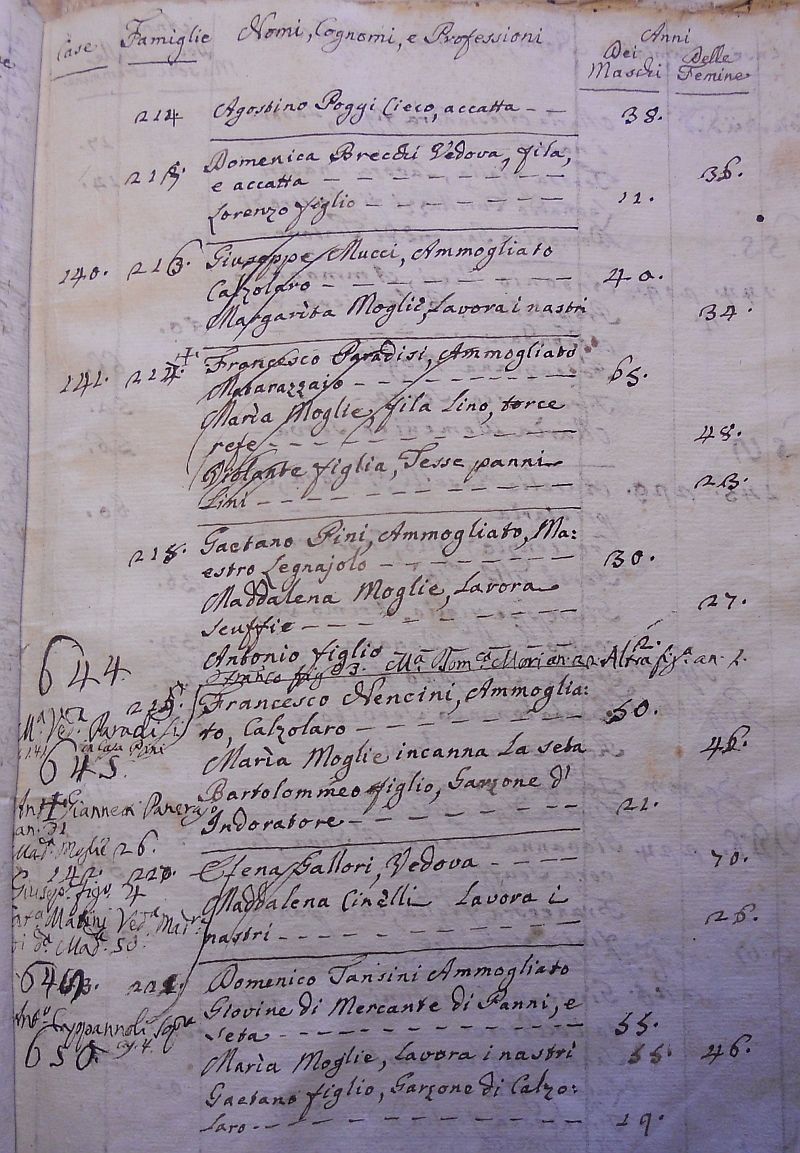 Case Famiglie Nomi, Cognomi, e Professioni Anni
Dei Maschi Delle Femine
214 Agostino Poggi Cieco, accatta 38.
215 Domenica Brecchi Vedova, fila,
e accatta 36.
Lorenzo figlio 11.
140. 216. Giuseppe Mucci, Ammogliato
Calzolaro 40.
Margarita Moglie, Lavora i nastri 34.
141. Francesco Paradisi, Ammogliato
Matarazzajo 65.
Marìa Moglie fila Lino, torce
refe 48.
Violante figlia, Tesse panni
Lini 23.
218. Gaetano Pini, Ammogliato, Ma:
estro Legnajolo 30.
Maddalena Moglie, Lavora
scuffie 27.
Antonio figlio 2.
644.
Altra an. 1.
219. Francesco Nencini, Ammoglia:
to, Calzolaro 50.
Paradisi
in Casa Pini
645.
Marìa Moglie incanna La seta 46.
Bartolommeo figlio, Garzone d'
Indoratore 21.
an. 31
Mad. Moglie 26.
142. 220. Elena Gallori, Vedova 70.
Giusep. figo. 4
Maddalena Cinelli Lavora i
nastri 26.
Mad. 50.
221. Domenico Tansini Ammogliato
Giovine di Mercante di Panni, e
seta 55.
650.
Marìa Moglie, Lavora i nastri 46.
Gaetano figlio, Garzone di Calzo:
laro 19.